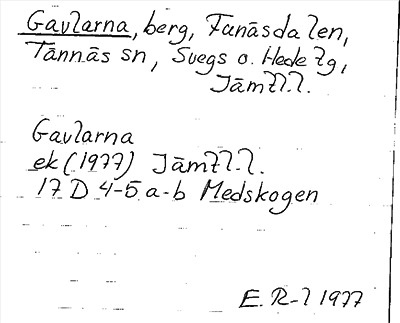 Gavlarna, berg, Funäsdalen,
Tännäs sn, Svegs o. Hede tg,
Jämtl. l.
Gavlarna
ek (1977) Jämtl. l.
17 D 4-5 a-b Medskogen
E. R-l 1977